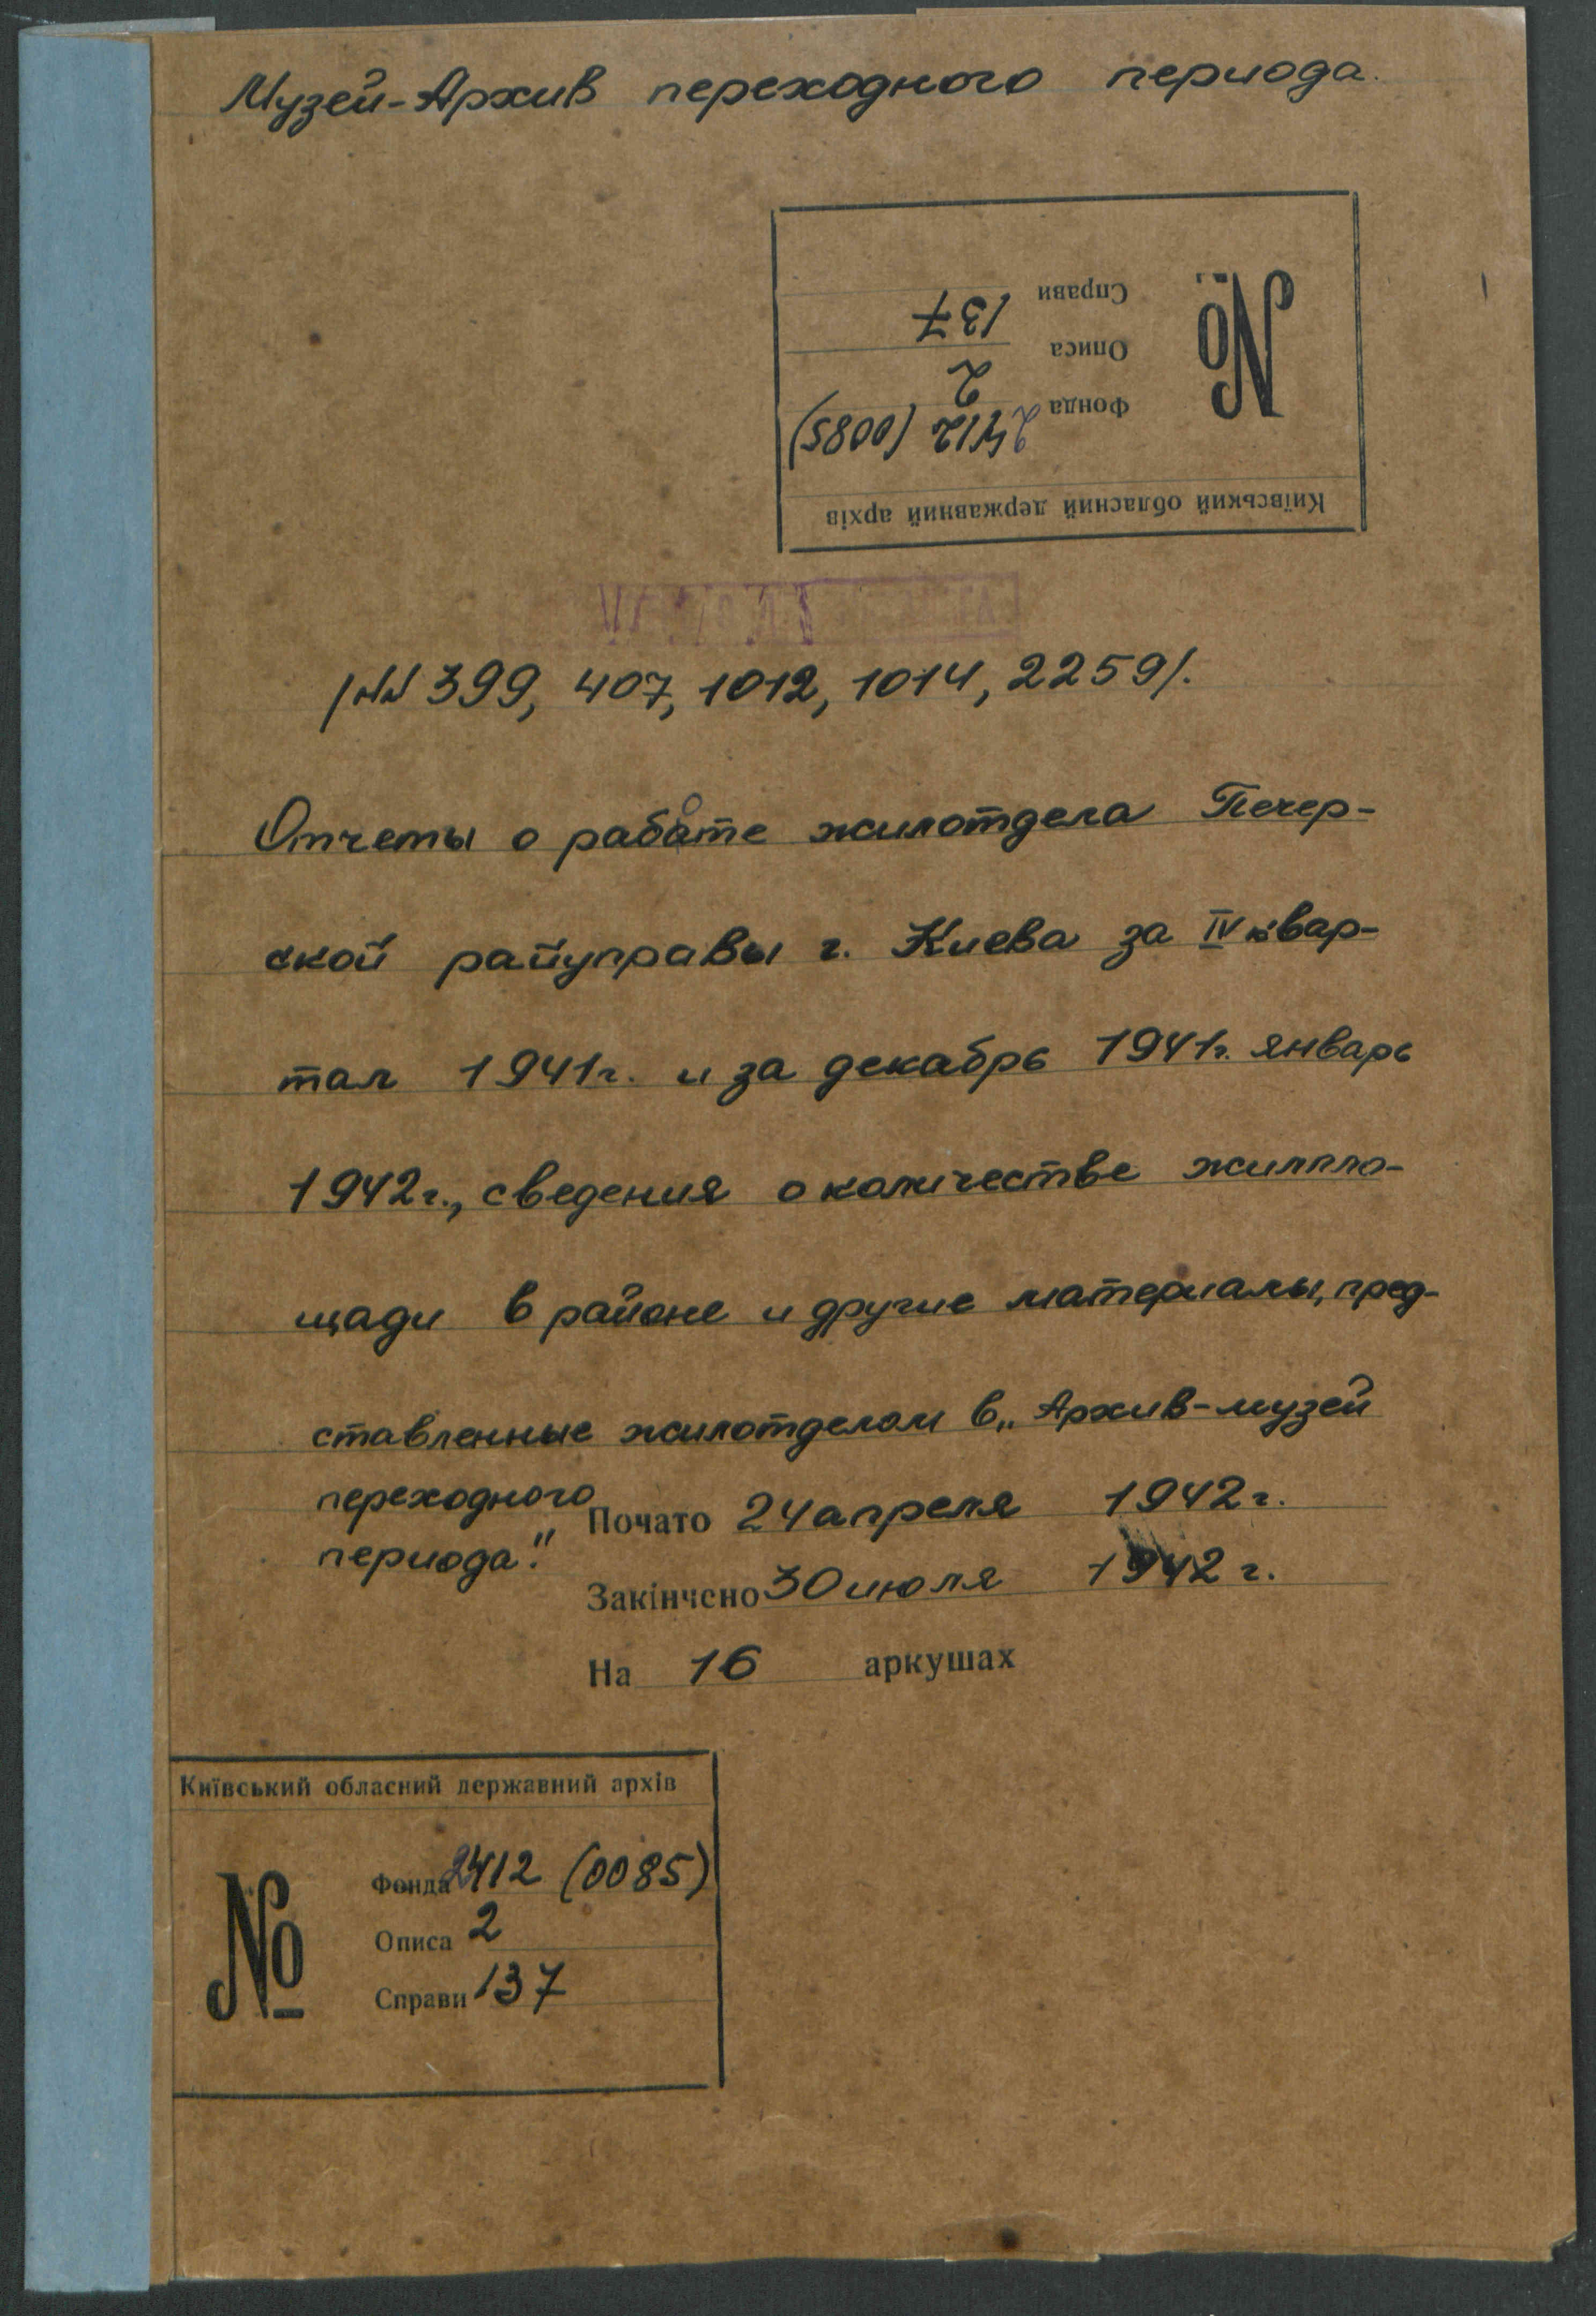 Музей-Архив переходного периода.
Київський обласний державний архів
№
Фонда 2412 (0085)
Описа 2
Справи 137
/№№ 399, 407, 1012, 1014, 2259/.
Отчеты о работе жилотдела Печер-
ской райуправы г. Киева за IV квар-
тал 1941г. и за декабрь 1941г. январь
1942г., сведения о количестве жилпло-
щади в районе и другие материалы, пред-
ставленные жилотделом в „Архив-музей
переходного
периода."
Почато 24 апреля 1942г.
Закінчено 30 июля 1942г.
На 16 аркушах
Київський обласний державний архів
№
Фонда 2412 (0085)
Описа 2
Справи 137